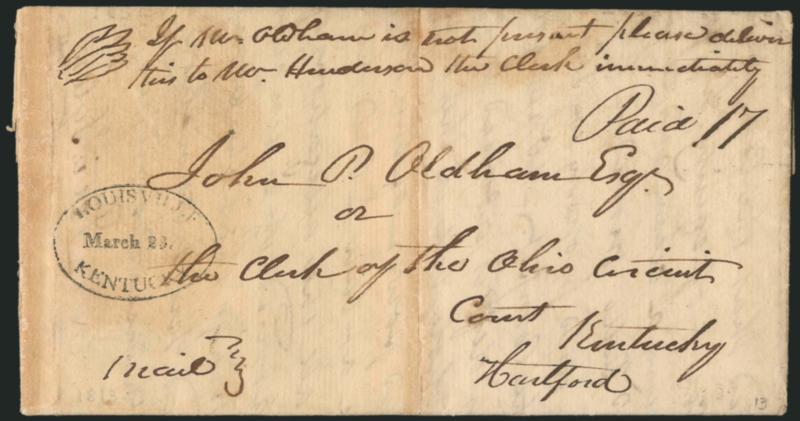 If Mr. Oldham is not present please deliver
this to Mr. Henderson the Clerk immediately
Paid 17
John P. Oldham Esqr.
or
LOUISVILLE
March 23.
KENTUCKY
the Clerk of the Ohio Circuit
Court Kentucky
Mail
Hartford
13